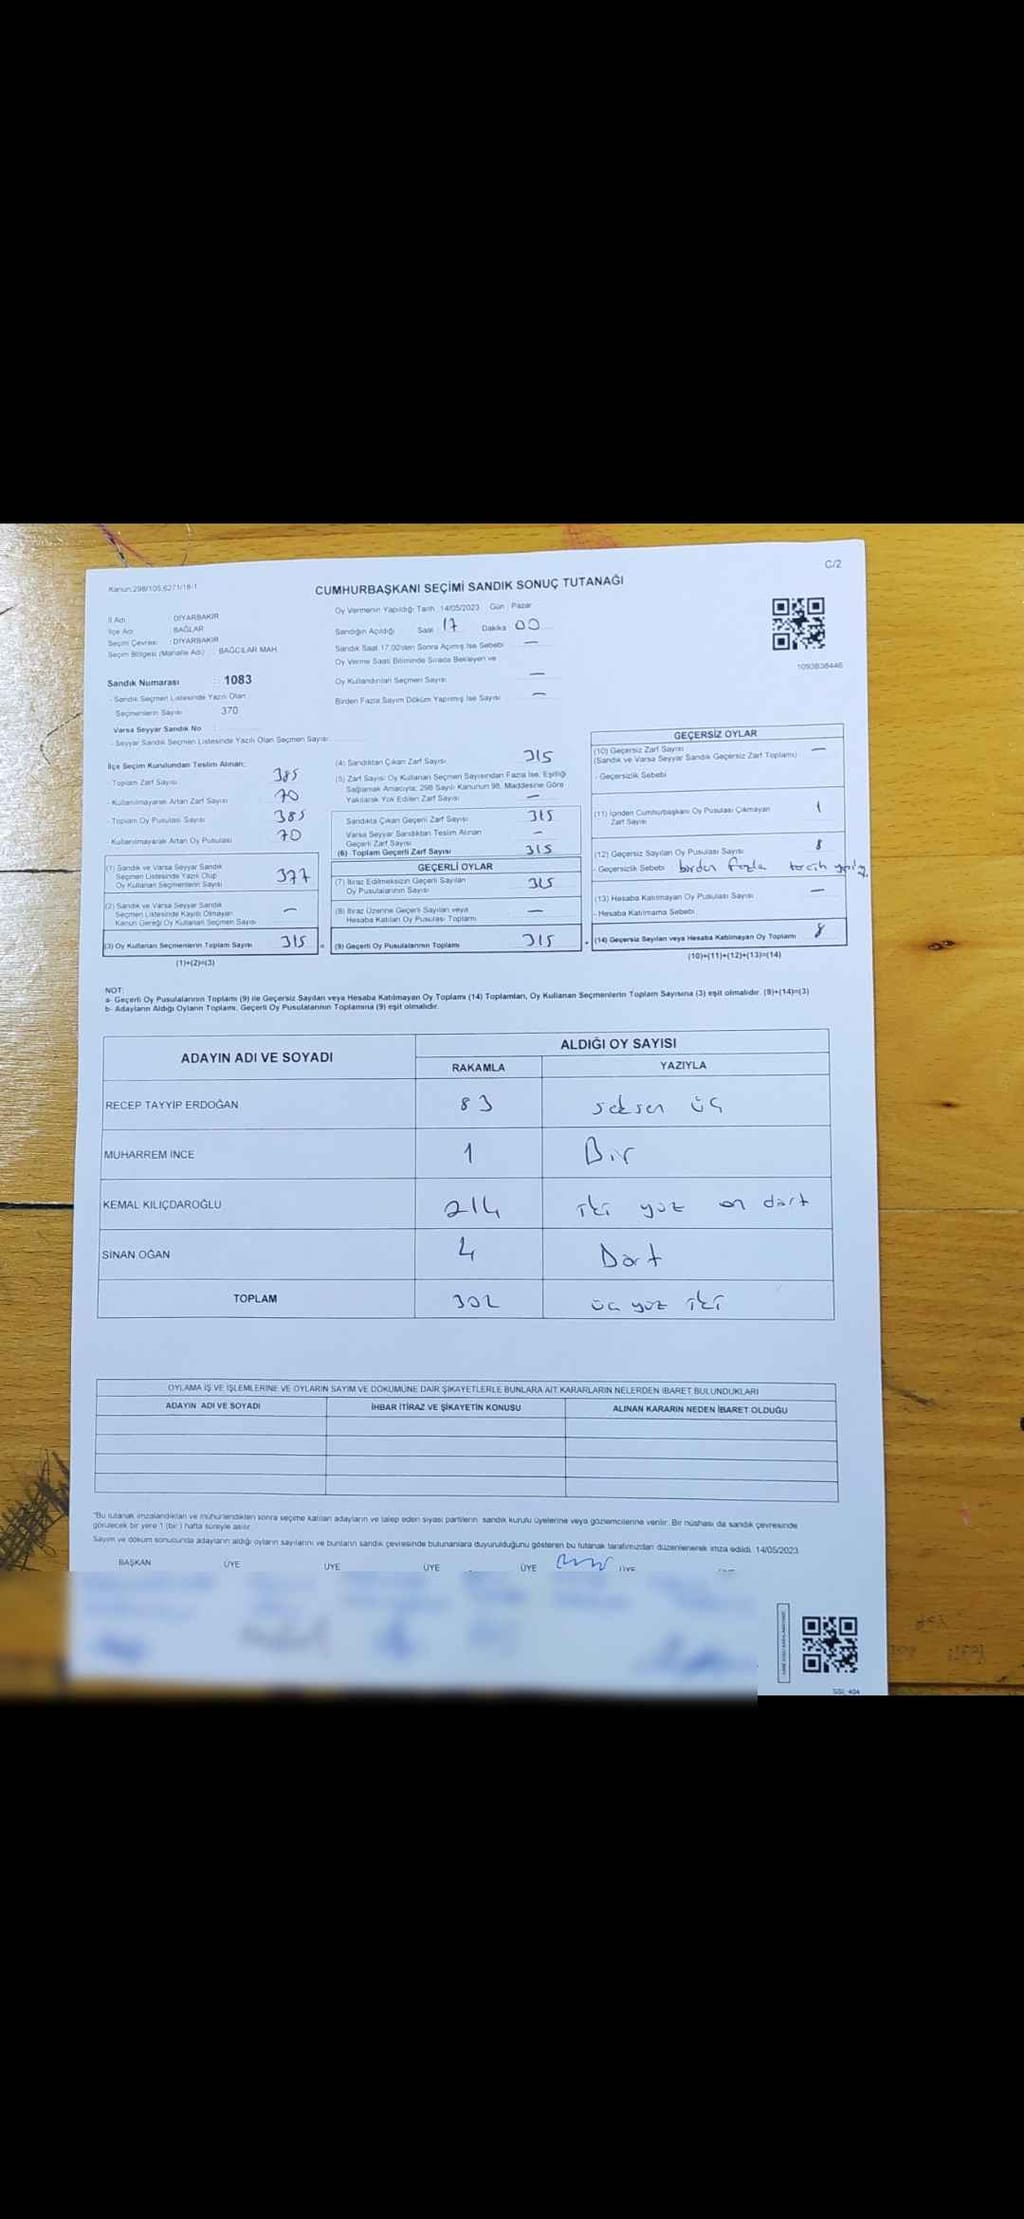 C/2
Kanun:298/105,6271/18-1
CUMHURBAŞKANI SEÇİMİ SANDIK SONUÇ TUTANAĞI
İl Adı : DİYARBAKIR
İlçe Adı : BAĞLAR
Seçim Çevresi : DİYARBAKIR
Seçim Bölgesi (Mahalle Adı) : BAĞCILAR MAH.
Oy Vermenin Yapıldığı Tarih 14/05/2023 Gün : Pazar
Sandığın Açıldığı Saat 17 Dakika 00
Sandık Saat 17.00'den Sonra Açılmış İse Sebebi —
Oy Verme Saati Bitiminde Sırada Bekleyen ve
Oy Kullandırılan Seçmen Sayısı —
Birden Fazla Sayım Döküm Yapılmış İse Sayısı —
1093838446
Sandık Numarası : 1083
- Sandık Seçmen Listesinde Yazılı Olan
Seçmenlerin Sayısı 370
Varsa Seyyar Sandık No
- Seyyar Sandık Seçmen Listesinde Yazılı Olan Seçmen Sayısı
İlçe Seçim Kurulundan Teslim Alınan;
- Toplam Zarf Sayısı 385
- Kullanılmayarak Artan Zarf Sayısı 70
- Toplam Oy Pusulası Sayısı 385
- Kullanılmayarak Artan Oy Pusulası 70
(1) Sandık ve Varsa Seyyar Sandık
Seçmen Listesinde Yazılı Olup
Oy Kullanan Seçmenlerin Sayısı 377
(2) Sandık ve Varsa Seyyar Sandık
Seçmen Listesinde Kayıtlı Olmayan
Kanun Gereği Oy Kullanan Seçmen Sayısı —
(3) Oy Kullanan Seçmenlerin Toplam Sayısı 315 =
(1)+(2)=(3)
(4) Sandıktan Çıkan Zarf Sayısı 315
(5) Zarf Sayısı Oy Kullanan Seçmen Sayısından Fazla İse, Eşitliği
Sağlamak Amacıyla, 298 Sayılı Kanunun 98. Maddesine Göre
Yakılarak Yok Edilen Zarf Sayısı —
Sandıkta Çıkan Geçerli Zarf Sayısı 315
Varsa Seyyar Sandıktan Teslim Alınan
Geçerli Zarf Sayısı —
(6) Toplam Geçerli Zarf Sayısı 315
GEÇERLİ OYLAR
(7) İtiraz Edilmeksizin Geçerli Sayılan
Oy Pusulalarının Sayısı 315
(8) İtiraz Üzerine Geçerli Sayılan veya
Hesaba Katılan Oy Pusulası Toplamı —
(9) Geçerli Oy Pusulalarının Toplamı 315 +
GEÇERSİZ OYLAR
(10) Geçersiz Zarf Sayısı —
(Sandık ve Varsa Seyyar Sandık Geçersiz Zarf Toplamı)
- Geçersizlik Sebebi
(11) İçinden Cumhurbaşkanı Oy Pusulası Çıkmayan
Zarf Sayısı 1
(12) Geçersiz Sayılan Oy Pusulası Sayısı 8
- Geçersizlik Sebebi birden fazla tercih
(13) Hesaba Katılmayan Oy Pusulası Sayısı —
- Hesaba Katılmama Sebebi
(14) Geçersiz Sayılan veya Hesaba Katılmayan Oy Toplamı 8
(10)+(11)+(12)+(13)=(14)
NOT:
a- Geçerli Oy Pusulalarının Toplamı (9) ile Geçersiz Sayılan veya Hesaba Katılmayan Oy Toplamı (14) Toplamları, Oy Kullanan Seçmenlerin Toplam Sayısına (3) eşit olmalıdır. (9)+(14)=(3)
b- Adayların Aldığı Oyların Toplamı, Geçerli Oy Pusulalarının Toplamına (9) eşit olmalıdır.
ADAYIN ADI VE SOYADI
ALDIĞI OY SAYISI
RAKAMLA YAZIYLA
RECEP TAYYİP ERDOĞAN 83 seksen üç
MUHARREM İNCE 1 Bir
KEMAL KILIÇDAROĞLU 214 iki yüz on dört
SİNAN OĞAN 4 Dört
TOPLAM 302 üç yüz iki
OYLAMA İŞ VE İŞLEMLERİNE VE OYLARIN SAYIM VE DÖKÜMÜNE DAİR ŞİKAYETLERLE BUNLARA AİT KARARLARIN NELERDEN İBARET BULUNDUKLARI
ADAYIN ADI VE SOYADI İHBAR İTİRAZ VE ŞİKAYETİN KONUSU ALINAN KARARIN NEDEN İBARET OLDUĞU
"Bu tutanak imzalandıktan ve mühürlendikten sonra seçime katılan adayların ve talep eden siyasi partilerin sandık kurulu üyelerine veya gözlemcilerine verilir. Bir nüshası da sandık çevresinde
görülecek bir yere 1 (bir) hafta süreyle asılır.
Sayım ve döküm sonucunda adayların aldığı oyların sayılarını ve bunların sandık çevresinde bulunanlara duyurulduğunu gösteren bu tutanak tarafımızdan düzenlenerek imza edildi. 14/05/2023
BAŞKAN ÜYE ÜYE ÜYE ÜYE ÜYE